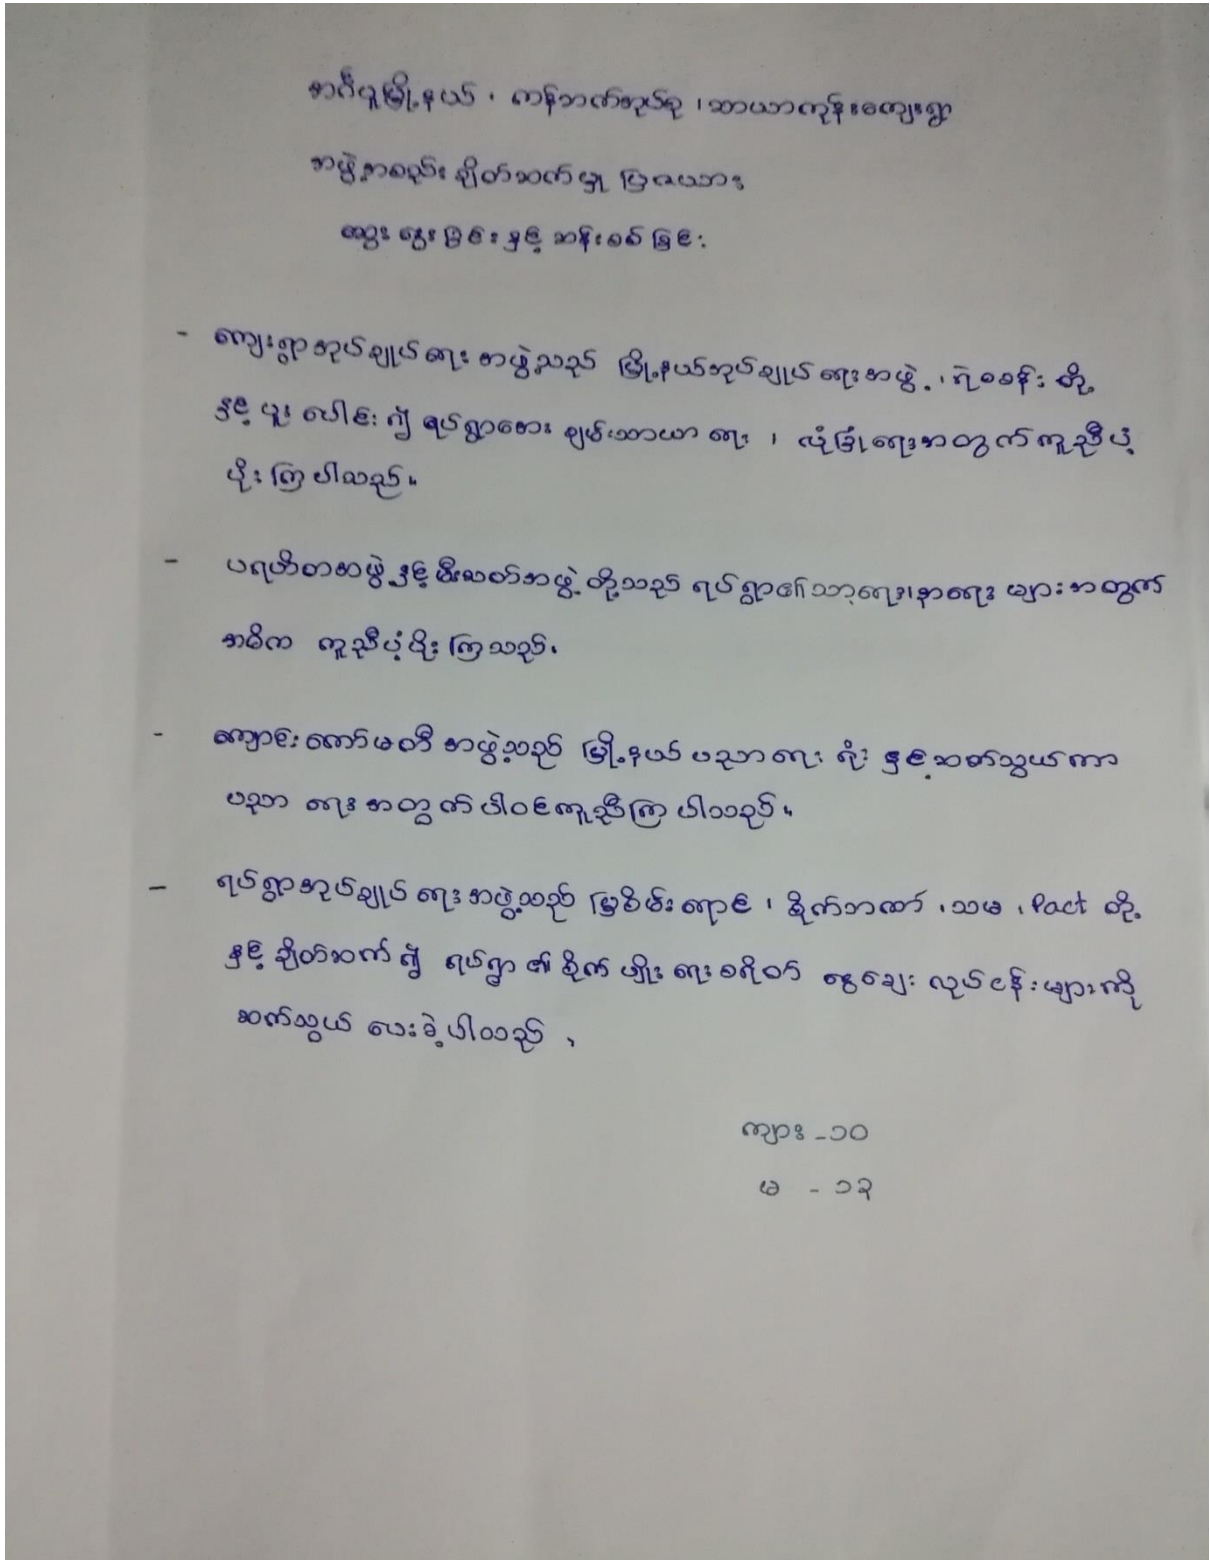 အင်္ဂပူမြို့နယ်၊ ကန်ဘက်အုပ်စု၊ ဆာယာကုန်းကျေးရွာ
အဖွဲ့အစည်း ချိတ်ဆက်မှု ပြဇယား
ဆွေးနွေးခြင်းနှင့် ဆန်းစစ်ခြင်း
- ကျေးရွာအုပ်ချုပ်ရေးအဖွဲ့သည် မြို့နယ်အုပ်ချုပ်ရေးအဖွဲ့၊ ရဲစခန်းတို့
နှင့် ပူးပေါင်း၍ ရပ်ရွာအေးချမ်းသာယာရေး၊ လုံခြုံရေးအတွက်ကူညီပံ့
ပိုးကြပါသည်။
- ပရဟိတအဖွဲ့နှင့်မီးသတ်အဖွဲ့တို့သည် ရပ်ရွာ၏သာရေး၊နာရေးများအတွက်
အဓိက ကူညီပံ့ပိုးကြသည်။
- ကျောင်းကော်မတီအဖွဲ့သည် မြို့နယ်ပညာရေးရုံးနှင့်ဆတ်သွယ်ကာ
ပညာရေးအတွက်ပါဝင်ကူညီကြပါသည်။
- ရပ်ရွာအုပ်ချုပ်ရေးအဖွဲ့သည် မြစိမ်းရောင်၊ စိုက်ဘဏ်၊ သမ၊ Pact တို့
နှင့် ချိတ်ဆက်၍ ရပ်ရွာ၏စိုက်ပျိုးရေးစရိတ် ချေးငွေလုပ်ငန်းများကို
ဆက်သွယ်ပေးခဲ့ပါသည်။
ကျား - ၁၀
မ - ၁၃